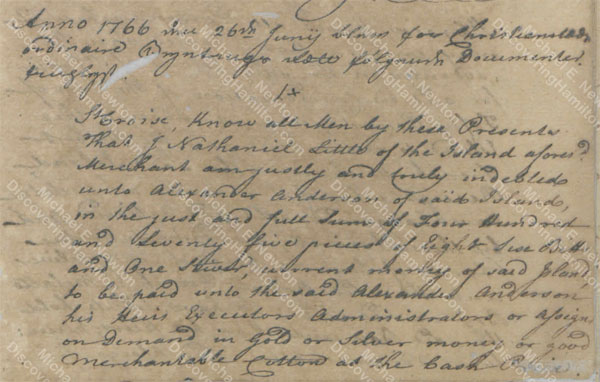 Anno 1766 den 26de Junij blew for Christiansteds
ordinaire Byetings Rett følgende Documenter
1x
St Croix, Know all Men by these Presents
That I Nathaniel Little of the Island afores.d
Merchant am justly and truly indebted
unto Alexander Anderson of said Island,
in the just and full Sum of Four Hundred
and Seventy five pieces of Eight Six Bitts
and One Stiver, current money of said Island
to be paid unto the said Alexander Anderson
his Heirs Executors Administrators or Assigns
on Demand in Gold or Silver money or good
Merchantable Cotton at the Cash Price.
Michael E. Newton
DiscoveringHamilton.com